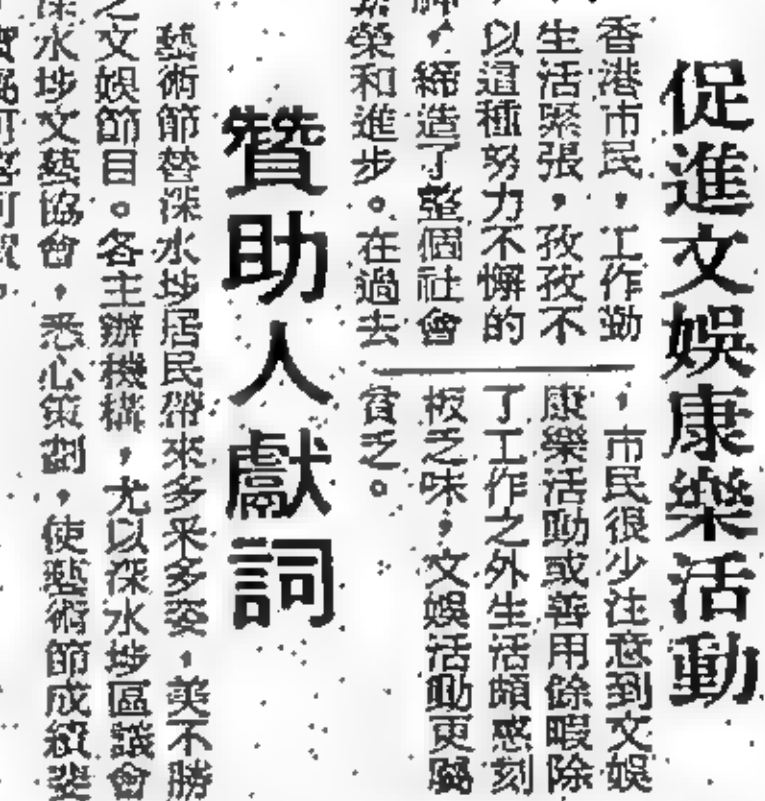 促進文娛康樂活動
香港市民，工作勤
生活緊張，孜孜不
以這種努力不懈的
，締造了整個社會
榮和進步。在過去
，市民很少注意到文娛
康樂活動或善用餘暇除
了工作之外生活頗感刻
板乏味，文娛活動更屬
貧乏。
贊助人獻詞
藝術節替深水埗居民帶來多采多姿，美不勝
之文娛節目。各主辦機構，尤以深水埗區議會
深水埗文藝協會，悉心策劃，使藝術節成績斐